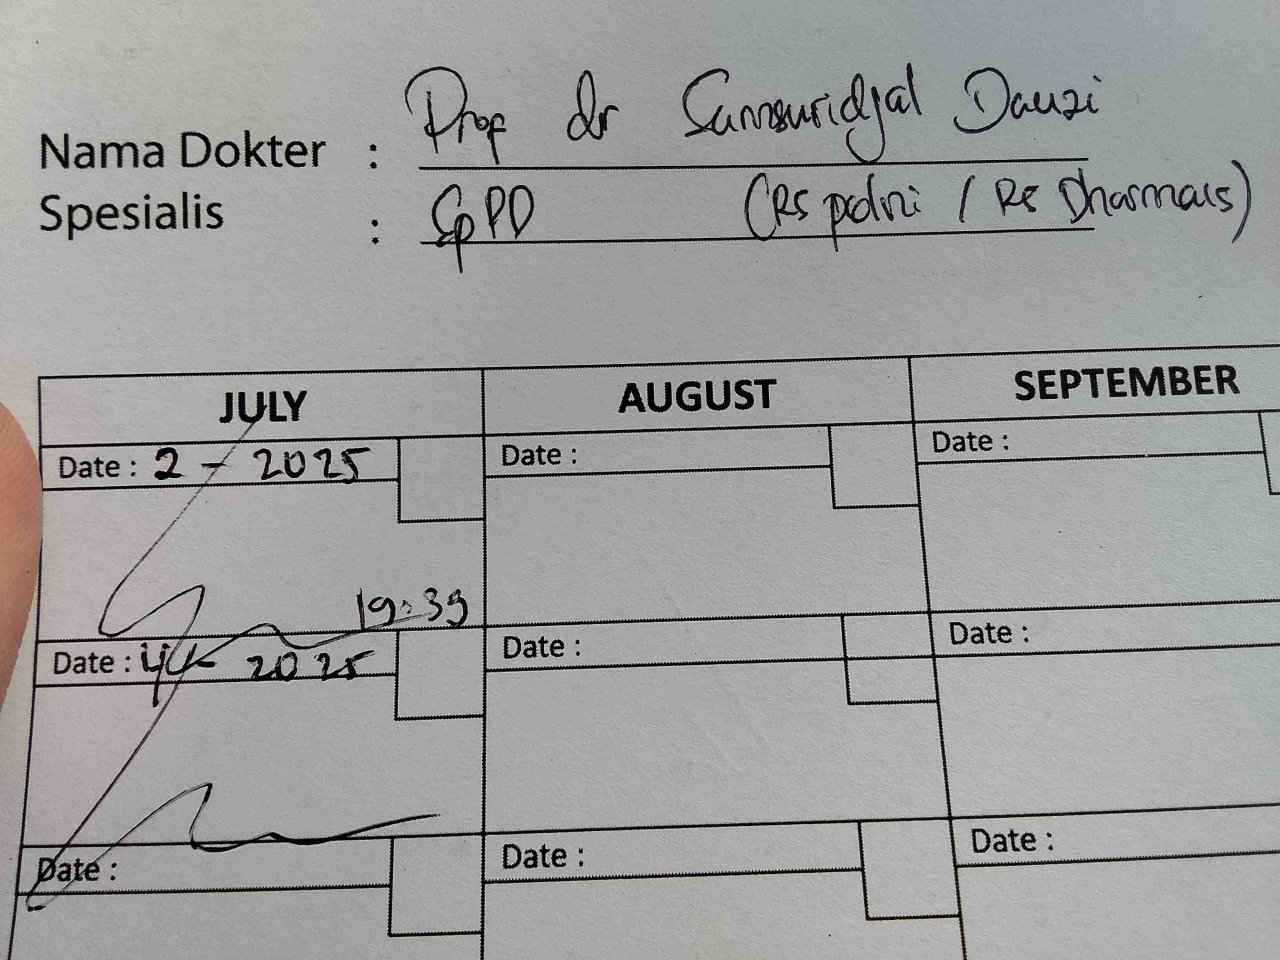 Nama Dokter : Prof dr Samsuridjal Dauzi
Spesialis : SpPD (RS polri / RS Dharmais)
JULY AUGUST SEPTEMBER
Date : 2 - 2025 Date : Date :
19:39
Date : 2025 Date : Date :
Date : Date : Date :